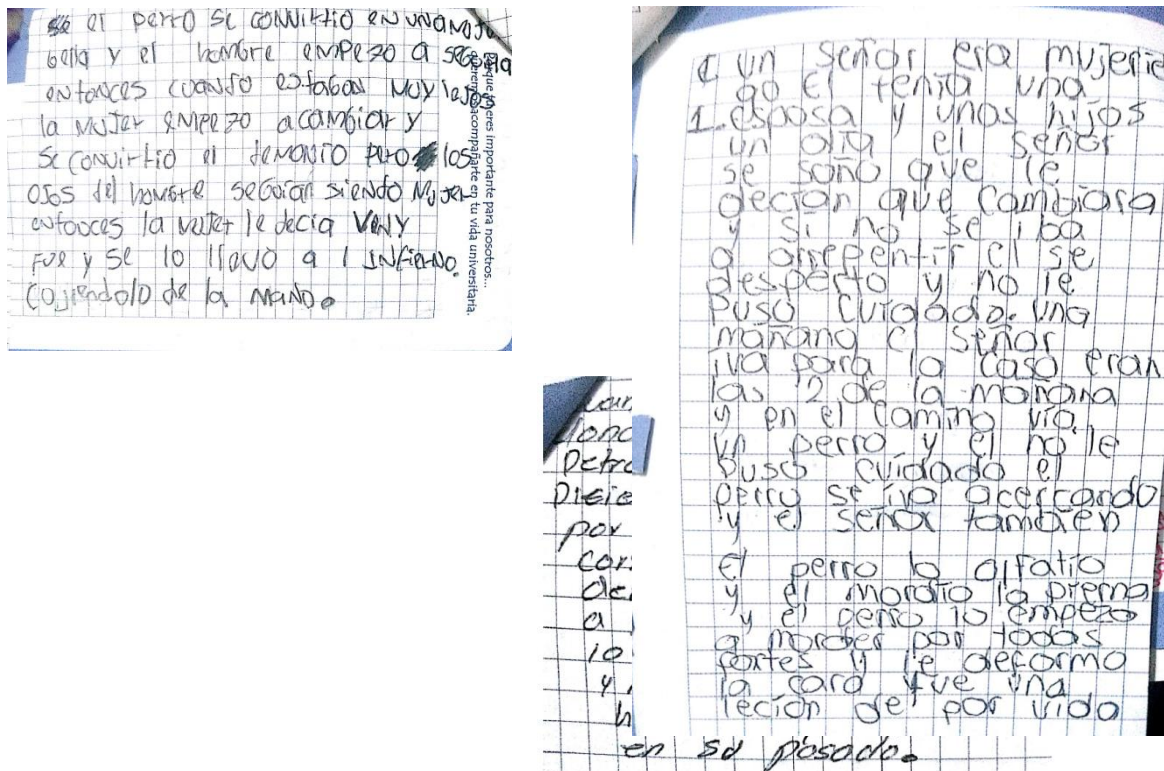 el perro se convirtio en una muje
bella y el hombre empezo a seguirla
entonces cuando estaban muy lejos
la mujer empezo a cambiar y
se convirtio el demonio pero los
ojos del hombre seguian siendo mujer
entonces la mujer le decia ven y
fue y se lo llavo a l infierno.
cojiendolo de la mano.
Porque tú eres importante para nosotros...
queremos acompañarte en tu vida universitaria.
un señor era mujerie
go el tenia una
1. esposa y unos hijos
un dia el señor
se soño que le
decian que cambiara
y si no se iba
a arrepentir el se
desperto y no le
puso cuidado. una
mañana el señor
iva para la casa eran
las 2 de la mañana
y en el camino vio
un perro y el no le
puso cuidado el
perro se iva acercando
y el señor tambien
El perro lo olfatio
y el mordio la pierna
y el perro lo empezo
a morder por todas
partes y le deformo
la cara fue una
leción de por vida
Detra
Dicie
por
cor
de
a
lo
y
h
en su pasado.